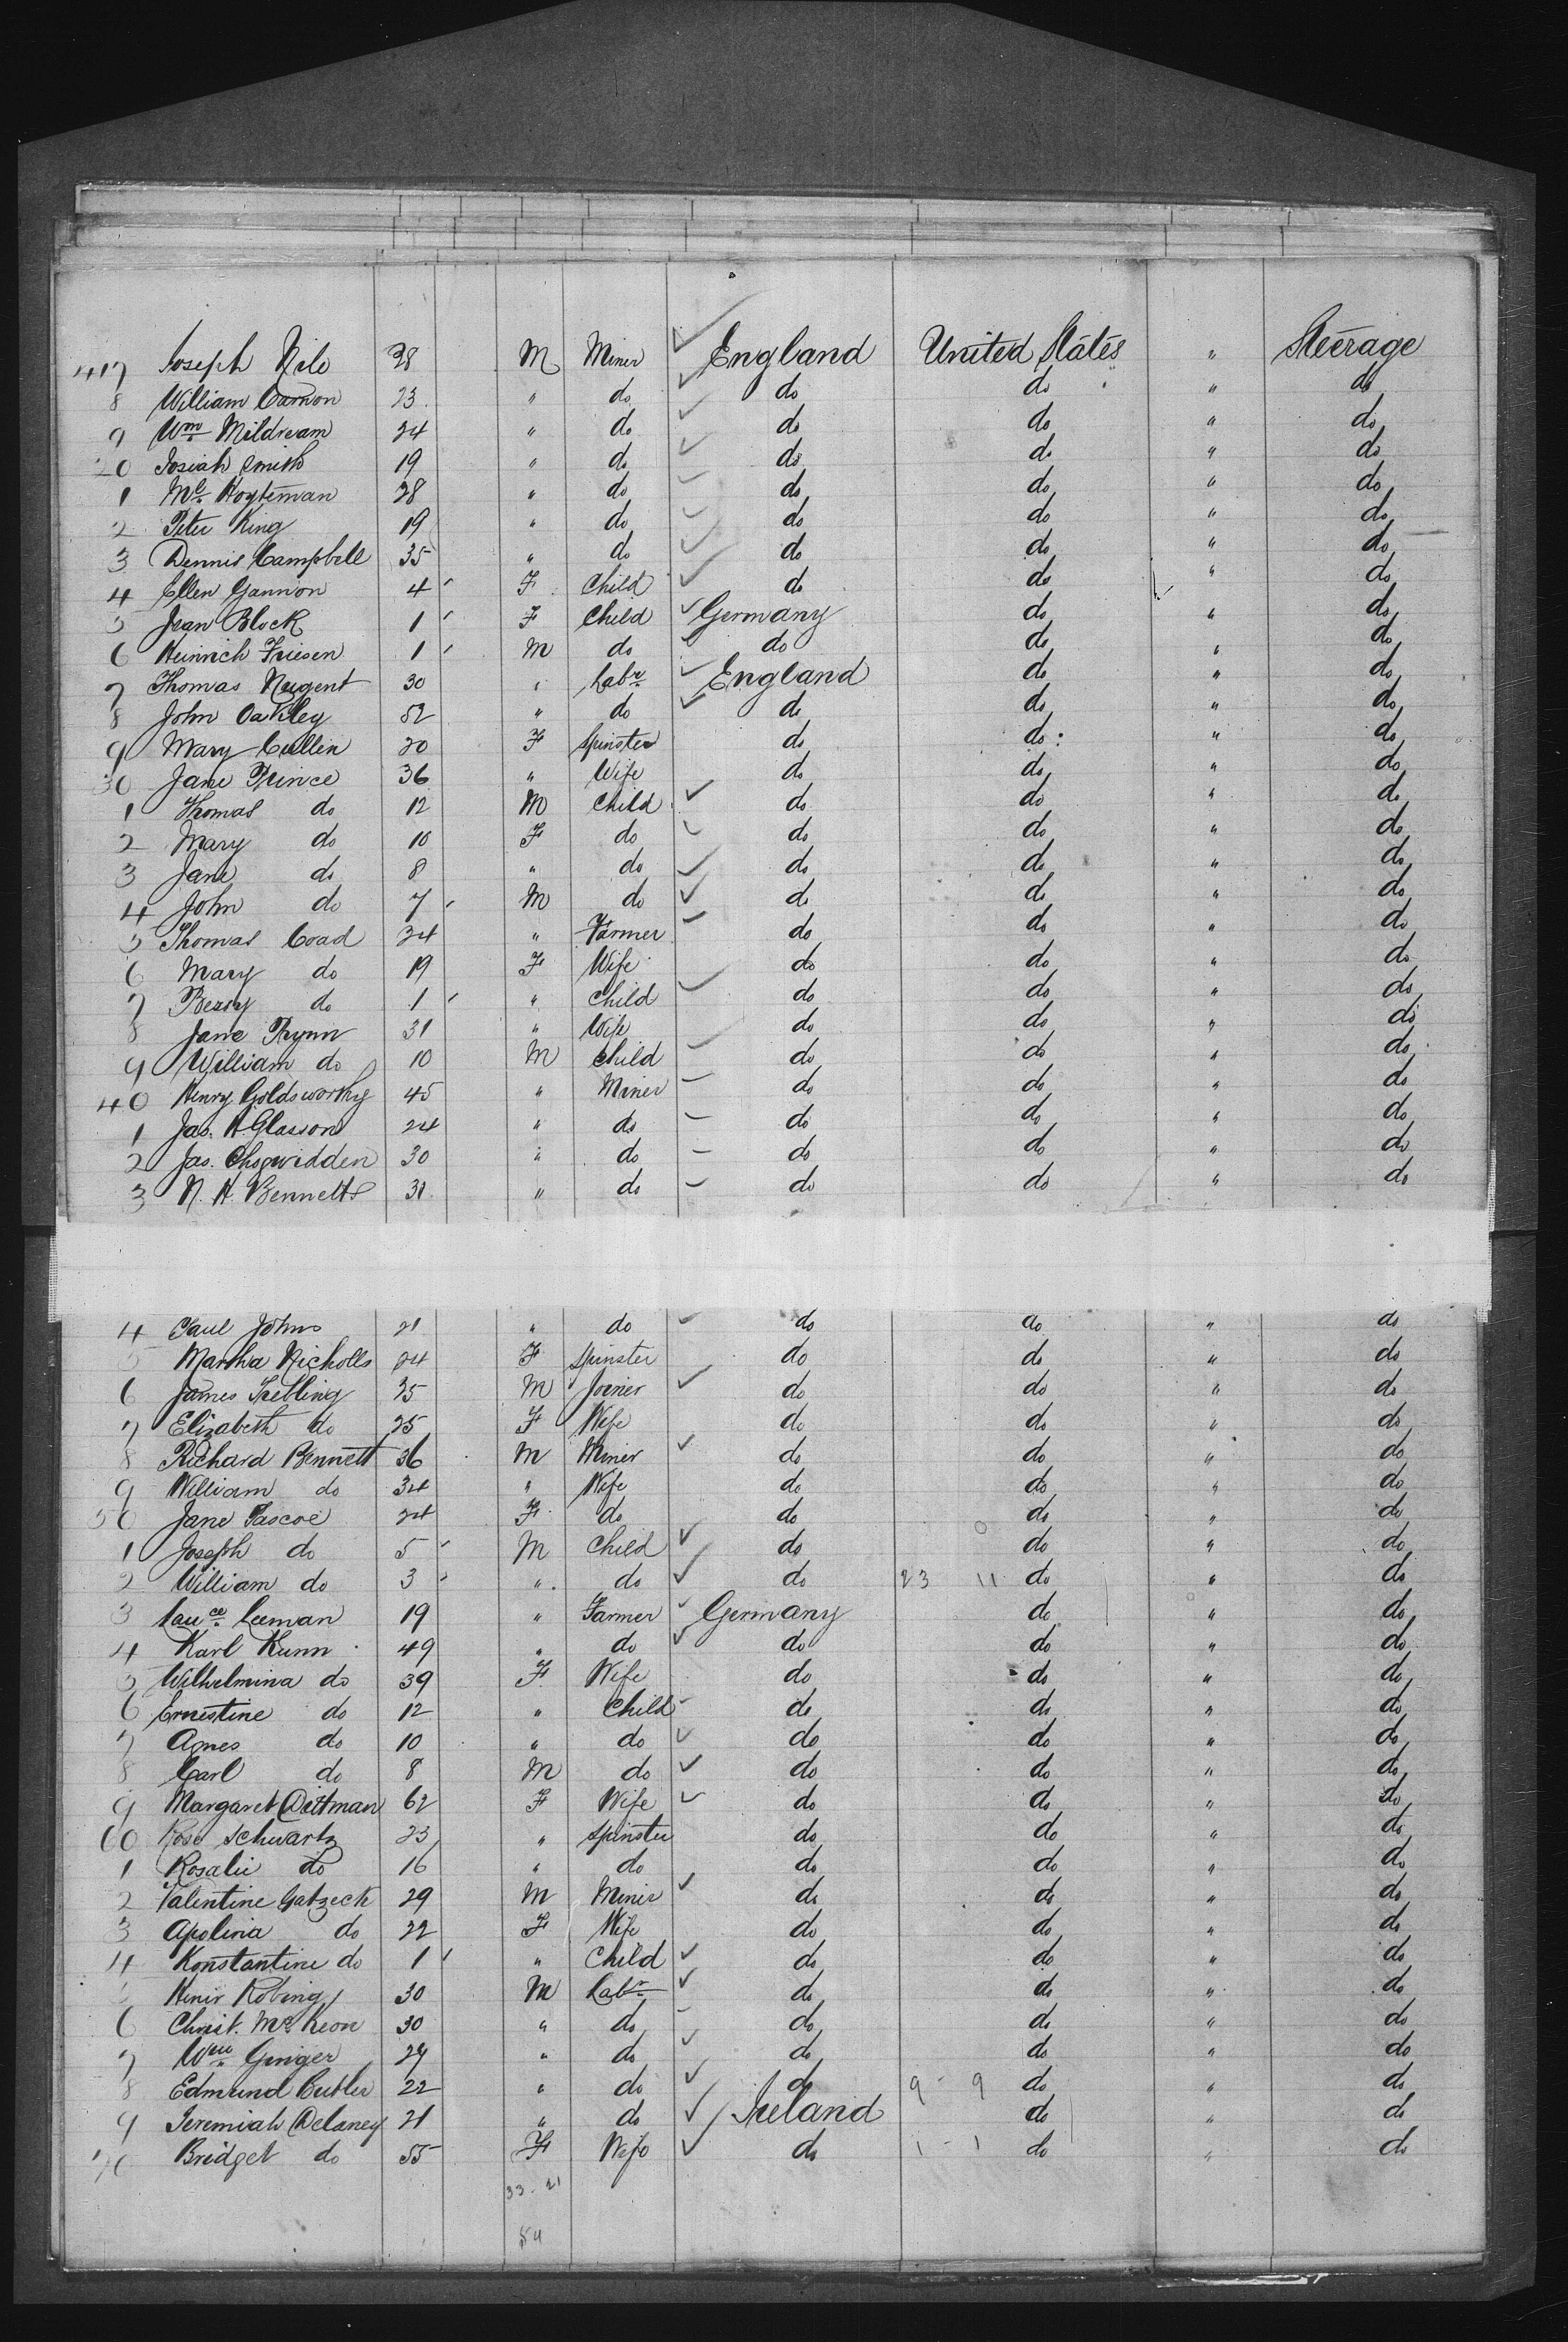 417 Joseph Nile 28 M Miner England United States " Steerage
8 William Cannon 23 " do do do " do
9 Wm Mildream 24 " do do do " do
20 Josiah Smith 19 " do do do " do
1 Mc Hoyteman 28 " do do do " do
2 Peter King 19 " do do do " do
3 Dennis Campbell 35 " do do do " do
4 Ellen Gannon 4 F Child do do " do
5 Jean Block 1 F Child Germany do " do
6 Heinrich Friesen 1 M do do do " do
7 Thomas Nugent 30 " Labr England do " do
8 John Oakley 52 " do do do " do
9 Mary Cullen 20 F Spinster do do " do
30 Jane Prince 36 " Wife do do " do
1 Thomas do 12 M Child do do " do
2 Mary do 10 F do do do " do
3 Jane do 8 " do do do " do
4 John do 7 M do do do " do
5 Thomas Coad 24 " Farmer do do " do
6 Mary do 19 F Wife do do " do
7 Bessy do 1 " Child do do " do
8 Jane Prynn 31 " Wife do do " do
9 William do 10 M Child do do " do
40 Henry Goldsworthy 45 " Miner do do " do
1 Jas. H. Glasson 24 " do do do " do
2 Jas. Chegwidden 30 " do do do " do
3 N. H. Bennetts 31 " do do do " do
4 Paul Johns 21 " do do do " do
5 Martha Nicholls 24 F Spinster do do " do
6 James Trebling 25 M Joiner do do " do
7 Elizabeth do 25 F Wife do do " do
8 Richard Bennett 36 M Miner do do " do
9 William do 34 " Wife do do " do
50 Jane Pascoe 24 F do do do " do
1 Joseph do 5 M Child do do " do
2 William do 3 " do do 23 11 do " do
3 Lauce Leeman 19 " Farmer Germany do " do
4 Karl Kunn 49 " do do do " do
5 Wilhelmina do 39 F Wife do do " do
6 Ernestine do 12 " Child do do " do
7 Agnes do 10 " do do do " do
8 Carl do 8 M do do do " do
9 Margaret Dittman 62 F Wife do do " do
60 Rose Schwartz 23 " Spinster do do " do
1 Rosalie do 16 " do do do " do
2 Valentine Gatzeck 29 M Miner do do " do
3 Apolina do 22 F Wife do do " do
4 Konstantine do 1 " Child do do " do
5 Henir Robing 30 M Labr do do " do
6 Christ. McKeon 30 " do do do " do
7 Wm Ginger 29 " do do do " do
8 Edmund Butler 22 " do do 9 - 9 do " do
9 Jeremiah Delaney 21 " do Ireland do " do
70 Bridget do 55 F Wife do 1 - 1 do " do
33 - 21
54